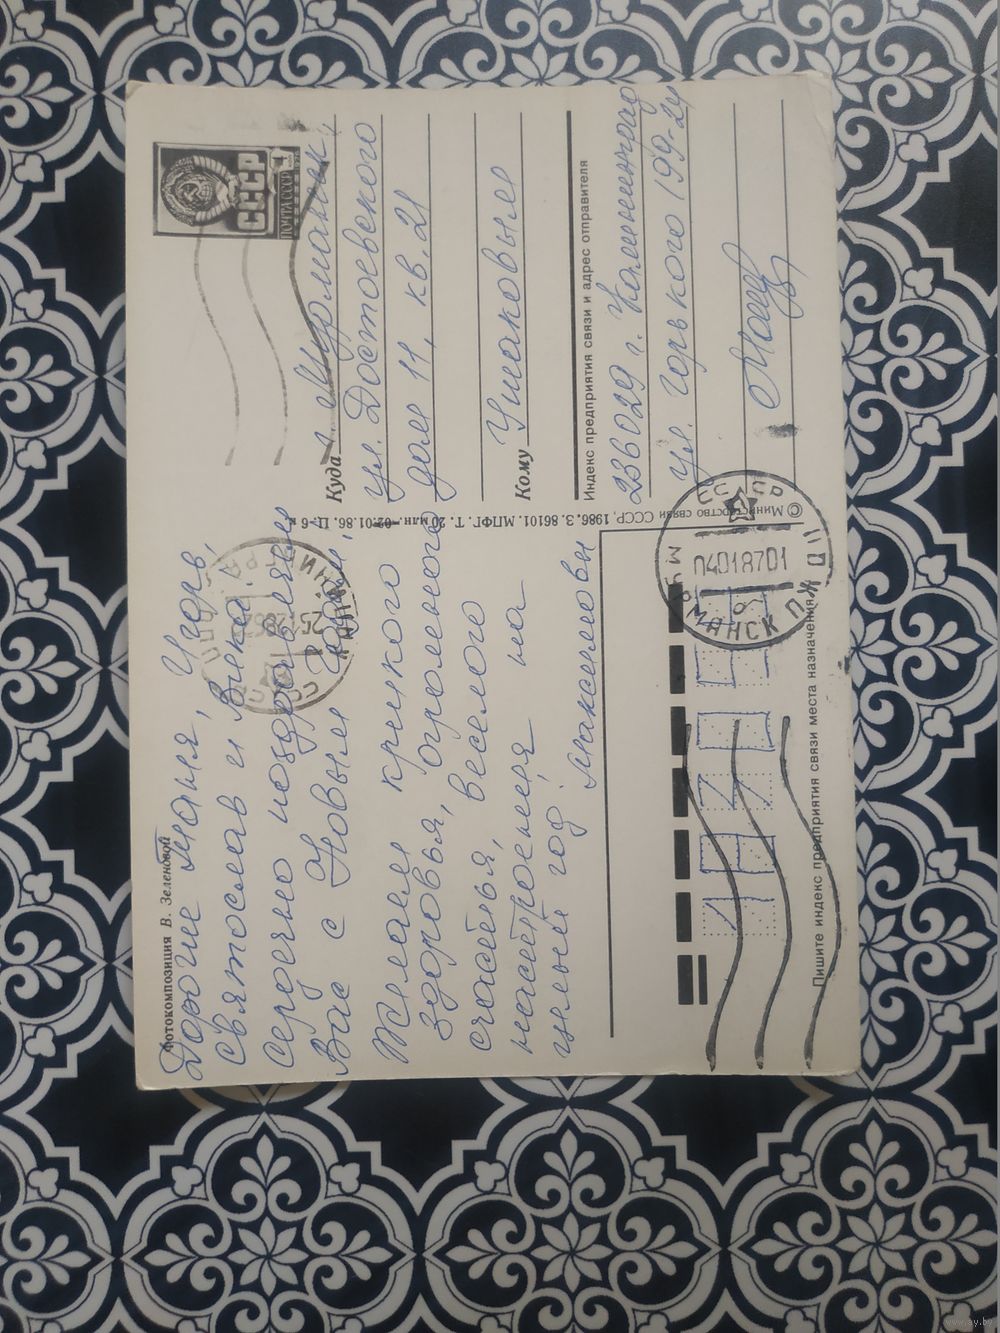 Фотокомпозиция В. Зеленовой
Дорогие Таня, Игорь,
Святослав и Вика!
Сердечно поздравляем
Вас с Новым годом,
Желаем крепкого
здоровья, огромного
счастья, веселого
настроения на
целый год.
Максимовы
СССР
ПОЧТА СССР
Куда г. Мурманск
ул. Достоевского
дом 11, кв. 21
Кому Ушаковым
Индекс предприятия связи и адрес отправителя
236029 г. Калининград
ул. Горького 199-24
© Министерство связи СССР, 1986. З. 86101. МПФГ. Т. 20 млн. 02.01.86. Ц. 6 к.
СССР
04018701
МУРМАНСК ПЖДП
СССР
КАЛИНИНГРАД
Пишите индекс предприятия связи места назначения
www.ay.by